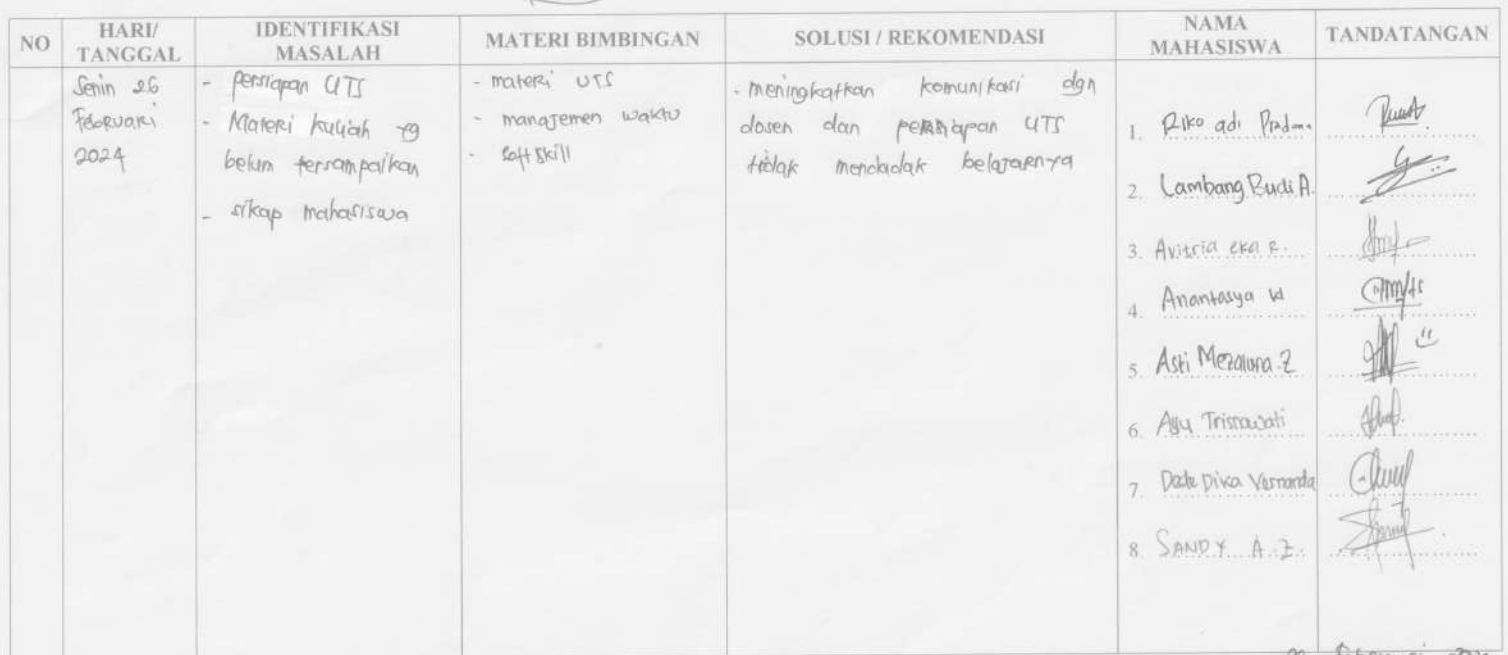 NO HARI/ TANGGAL IDENTIFIKASI MASALAH MATERI BIMBINGAN SOLUSI / REKOMENDASI NAMA MAHASISWA TANDATANGAN
Senin 26
Februari
2024
- persiapan UTS
- Materi kuliah yg
belum tersampaikan
- sikap mahasiswa
- materi UTS
- manajemen waktu
- softskill
- meningkatkan komunikasi dgn
dosen dan persiapan UTS
tidak mendadak belajarnya
1. Riko adi
2. Lambang Budi A.
3. Avitria eka R.
4. Anantasya W
5. Asti Z
6. Ayu Trisnawati
7. Dika Vernanda
8. SANDY A.Z.